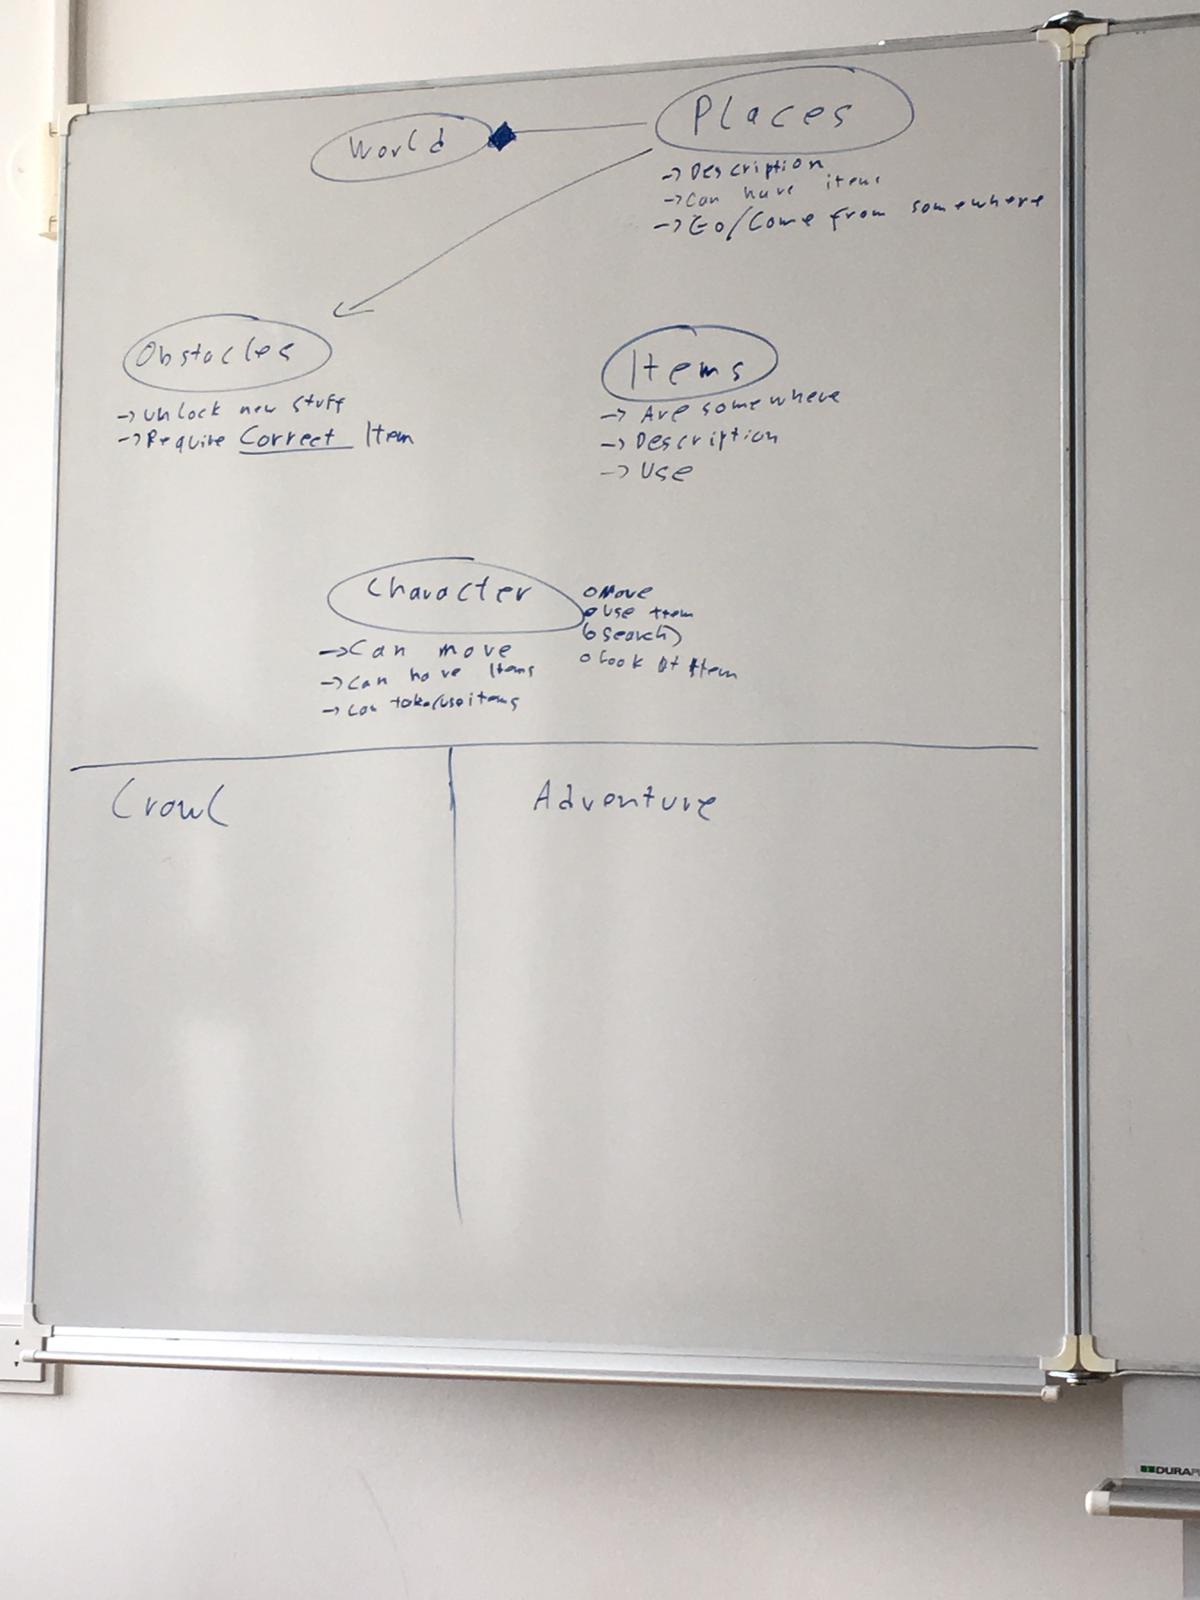 World
Places
-> Description
-> Can have items
-> Go/Come from somewhere
Obstacles
-> Unlock new stuff
-> Require Correct Item
Items
-> Are somewhere
-> Description
-> Use
Character
-> Can move
-> Can have Items
-> Can take/use items
o Move
o Use Item
(o Search)
o Look At Item
Crawl
Adventure
DURA